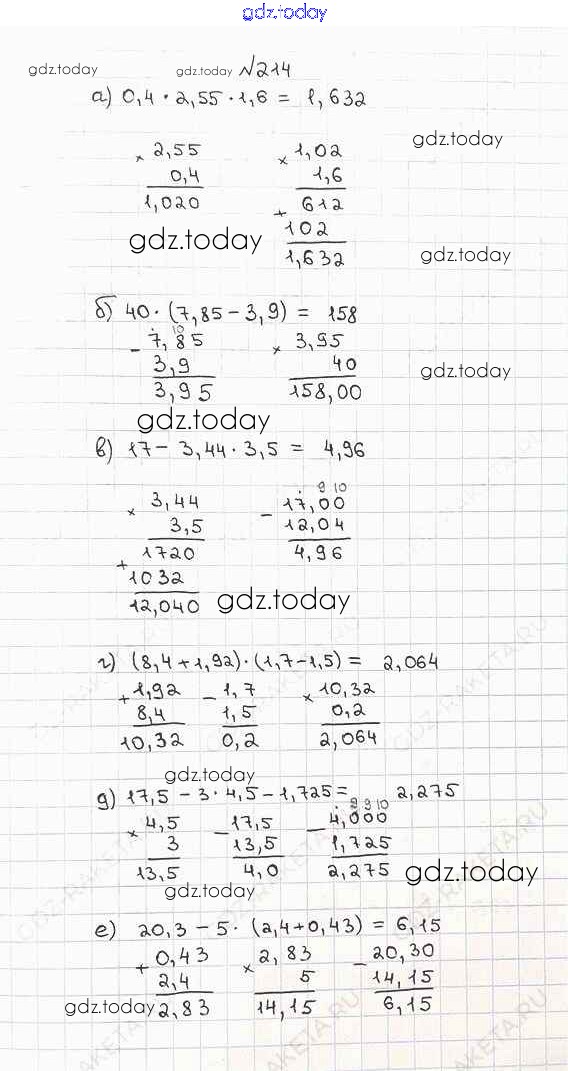 gdz.today
gdz.today gdz.today №214
а) 0,4 · 2,55 · 1,6 = 1,632
gdz.today
× 2,55 × 1,02
0,4 1,6
1,020 + 612
102
gdz.today 1,632 gdz.today
б) 40 · (7,85 − 3,9) = 158
10
− 7,85 × 3,95
3,9 40 gdz.today
3,95 158,00
gdz.today
в) 17 − 3,44 · 3,5 = 4,96
9 10
× 3,44 − 17,00
3,5 12,04
+ 1720 4,96
1032
12,040 gdz.today
г) (8,4 + 1,92) · (1,7 − 1,5) = 2,064
+ 1,92 − 1,7 × 10,32
8,4 1,5 0,2
10,32 0,2 2,064
gdz.today
д) 17,5 − 3 · 4,5 − 1,725 = 2,275
9 9 10
× 4,5 − 17,5 − 4,000
3 13,5 1,725
13,5 4,0 2,275 gdz.today
gdz.today
е) 20,3 − 5 · (2,4 + 0,43) = 6,15
+ 0,43 × 2,83 − 20,30
2,4 5 14,15
gdz.today 2,83 14,15 6,15
GDZ-RAKETA.RU
GDZ-RAKETA.RU
GDZ-RAKETA.RU